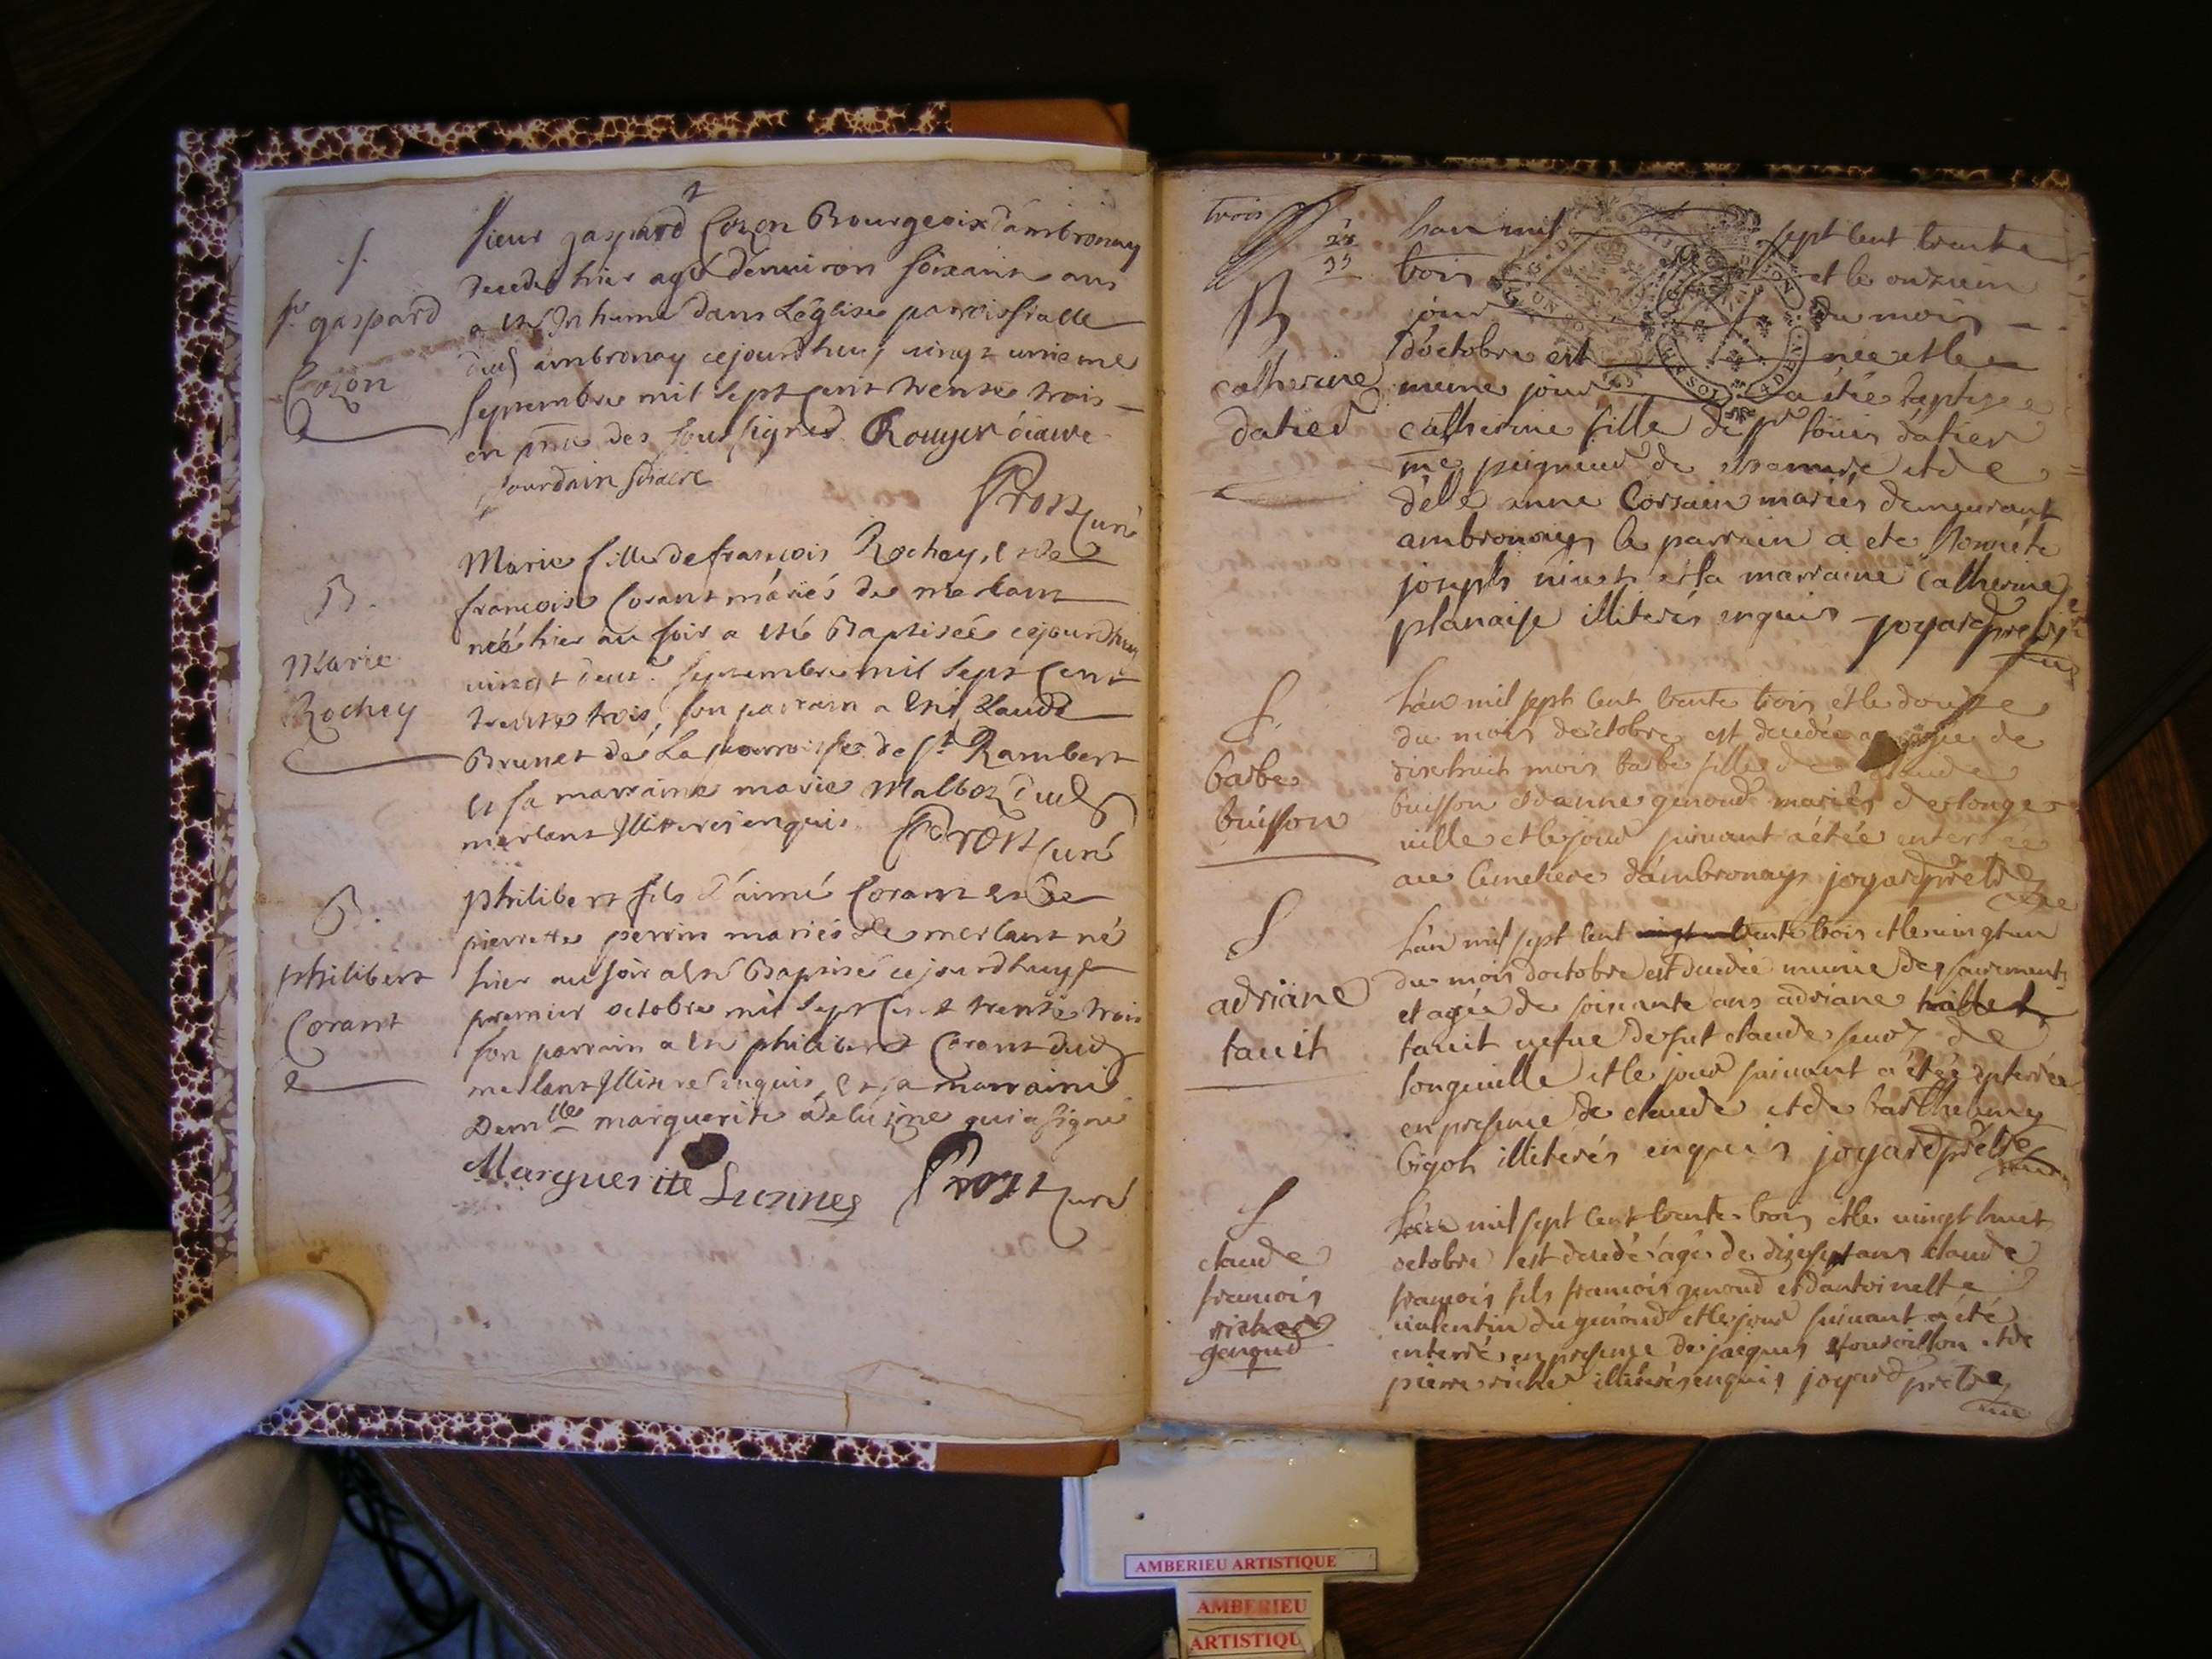 S.
Sr gaspard
Cozon
Sieur gaspard Cozon Bourgeoix dambronay
decedé hier agé denuiron soixante ans
a esté Inhumé dans Léglise parroissialle
dud ambronay cejourdhuy vingt unieme
septembre mil sept cent trente trois
en pnce des soussignés Rouyer diacre
jourdain diacre
Prost curé
B.
Marie
Rochey
Marie fille de françois Rochey, et de
francoise Corant mariés de merlant
néé hier au soir a esté Baptiséé cejourdhuy
vingt deux septembre mil sept cent
trente trois, son parrain a esté Claude
Brunet de La parroisse de St Rambert
et sa marraine marie Malboz dud
merlant Illiterés enquis Prost curé
B.
philibert
Corant
philibert fils d'aimé Corant et de
pierrette perrin mariés de merlant né
hier au soir a esté Baptisé cejourdhuy
premier octobre mil sept cent trente trois
son parrain a esté philibert Corant dud
merlant Illiteré enquis, et sa marraine
Demlle marguerite qui a signé
Marguerite Prost curé
trois
B
catherine
datier
lan mil sept cent trente
trois et le onzieme
jour du mois
doctobre est née et le
meme jour a étée baptisee
catherine fille de sr loüis datier
me peigneur de chanvre et de
dele anne Corsain mariés demeurant
ambronay le parrain a eté honnéte
joseph et la marraine catherine
planaise illiterés enquis joyard pretre
S.
barbe
buisson
lan mil sept cent trente trois et le douze
du mois doctobre est decedée agée de
dixhuit mois barbe fille de claude
buisson et danne genoud mariés de longe
uille et le jour suiuant a étée enterrée
au cimetiere dambronay joyard pretre
S
adriane
tauit
lan mil sept cent trente trois et le uingt un
du mois doctobre est decedée munie des sacrements
et agée de soixante ans adriane
tauit uefue de fut claude de
longeuille et le jour suiuant a étée enterrée
en presence de claude et de barthelemy
bigot illiterés enquis joyard pretre
S
claude
francois
genoud
lan mil sept cent trente trois et le uingt huit
octobre est decedé agé de dixsept ans claude
francois fils francois genoud et dantoinette
ualentin du genoud et le jour suiuant a été
enterré en presence de jacques et de
pierre riche illiterés enquis joyard pretre
AMBERIEU ARTISTIQUE
AMBERIEU
ARTISTIQU